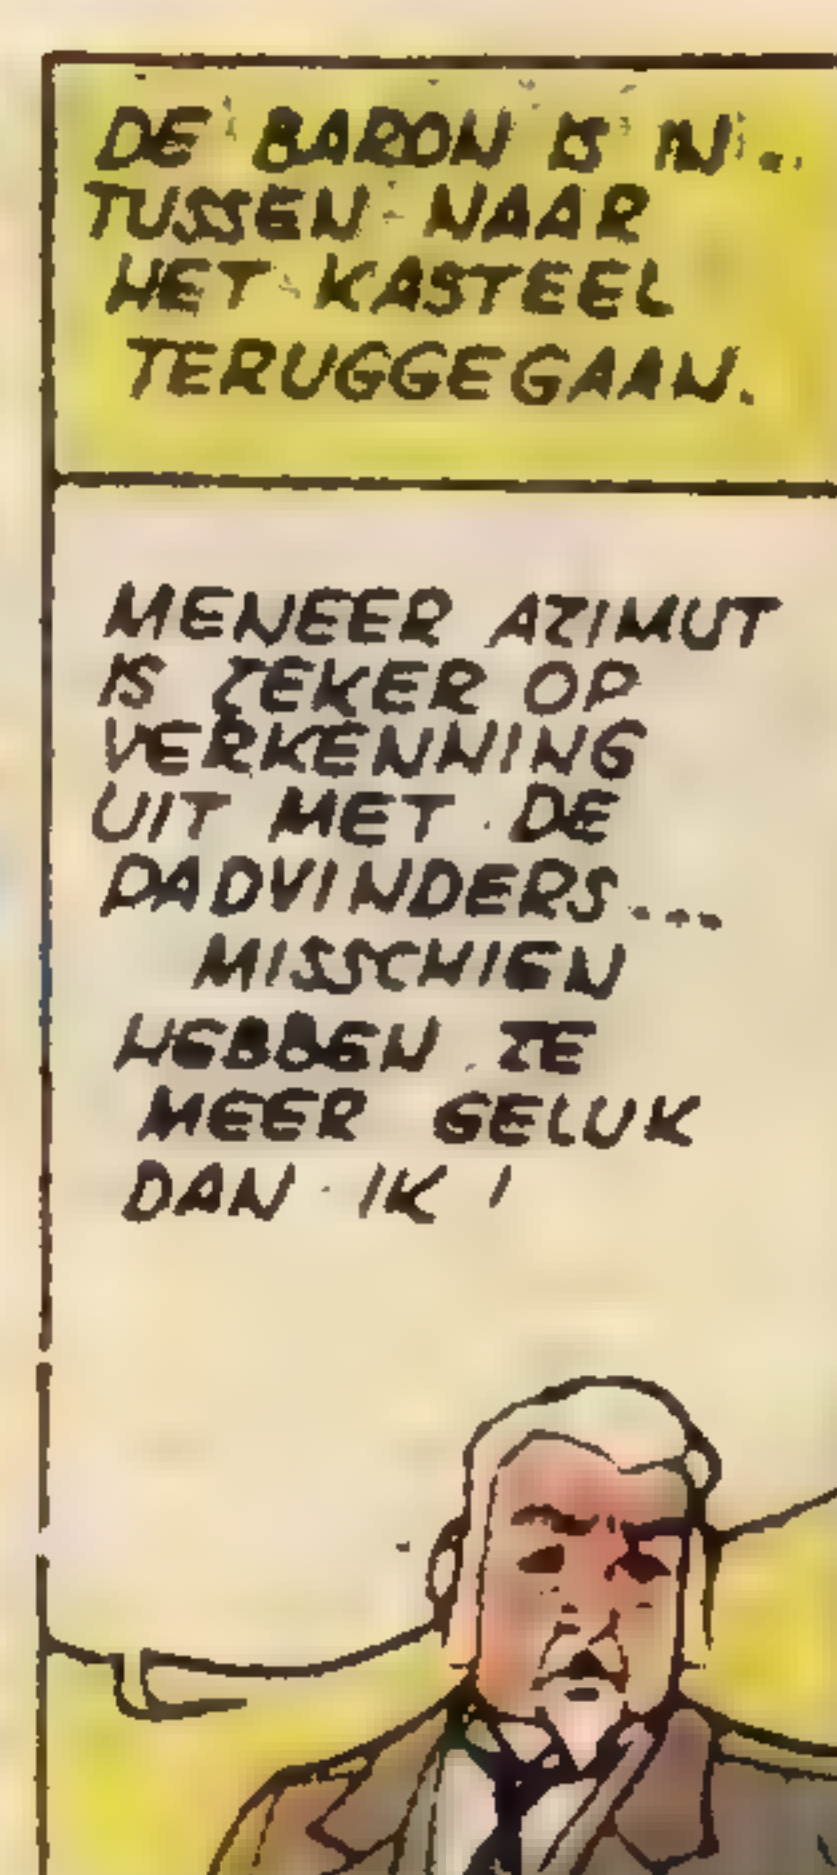 DE BARON IS IN...
TUSSEN NAAR
HET KASTEEL
TERUGGEGAAN.
MENEER AZIMUT
IS ZEKER OP
VERKENNING
UIT MET DE
PADVINDERS...
MISSCHIEN
HEBBEN ZE
MEER GELUK
DAN IK !